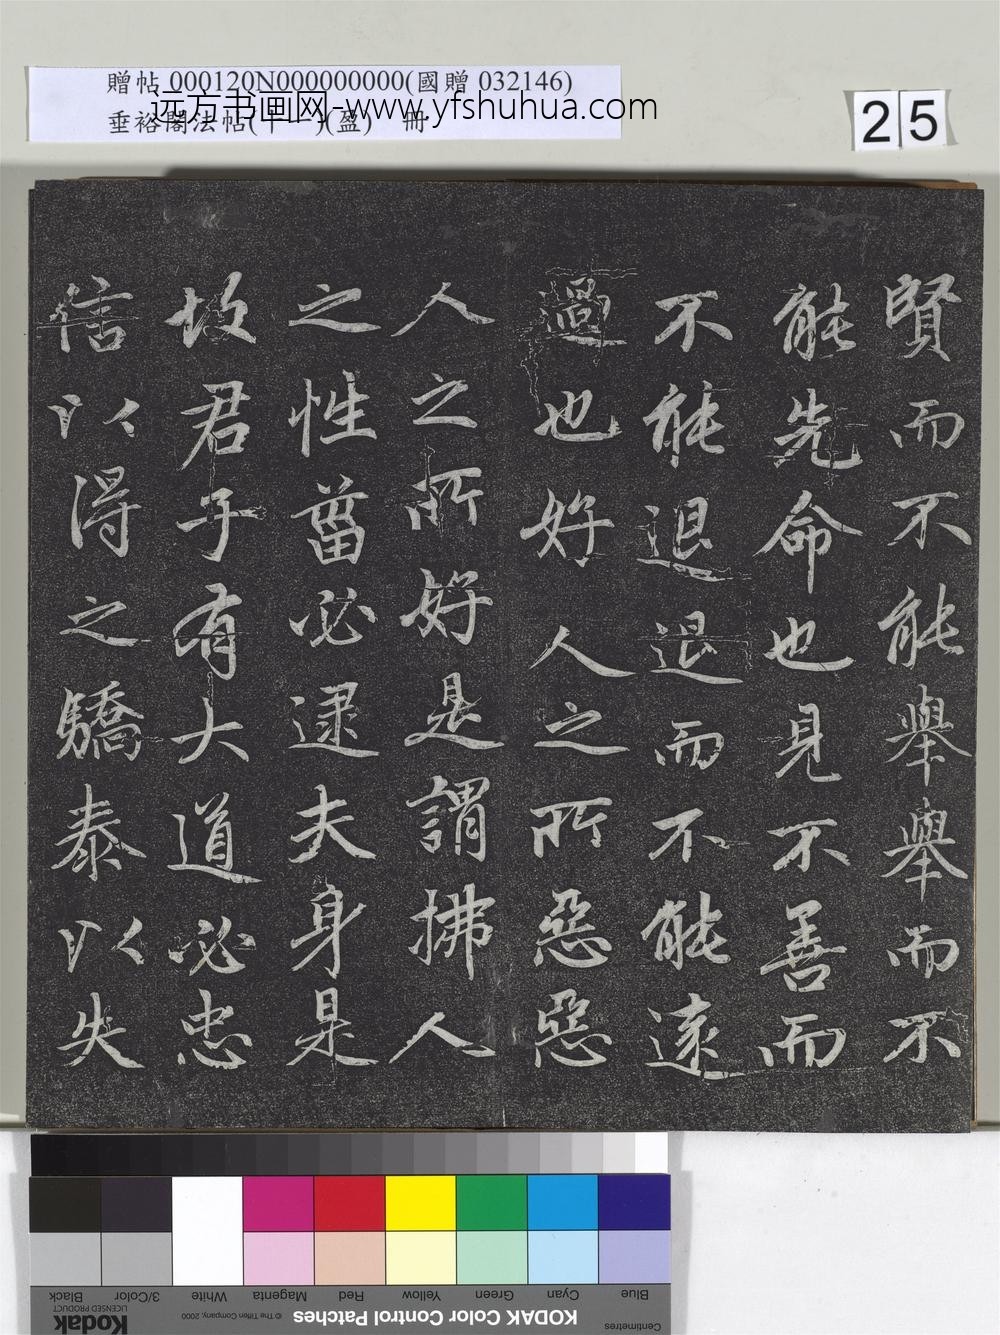 贈帖 000120N000000000(國贈 032146)
垂裕閣法帖(十一)(盈) 冊
远方书画网-www.yfshuhua.com
25
賢而不能舉舉而不
能先命也見不善而
不能退退而不能遠
過也好人之所惡惡
人之所好是謂拂人
之性菑必逮夫身是
故君子有大道必忠
信以得之驕泰以失
Blue Cyan Green Yellow Red Magenta White 3/Color Black
Centimetres KODAK Color Control Patches © The Tiffen Company, 2000 Kodak
LICENSED PRODUCT